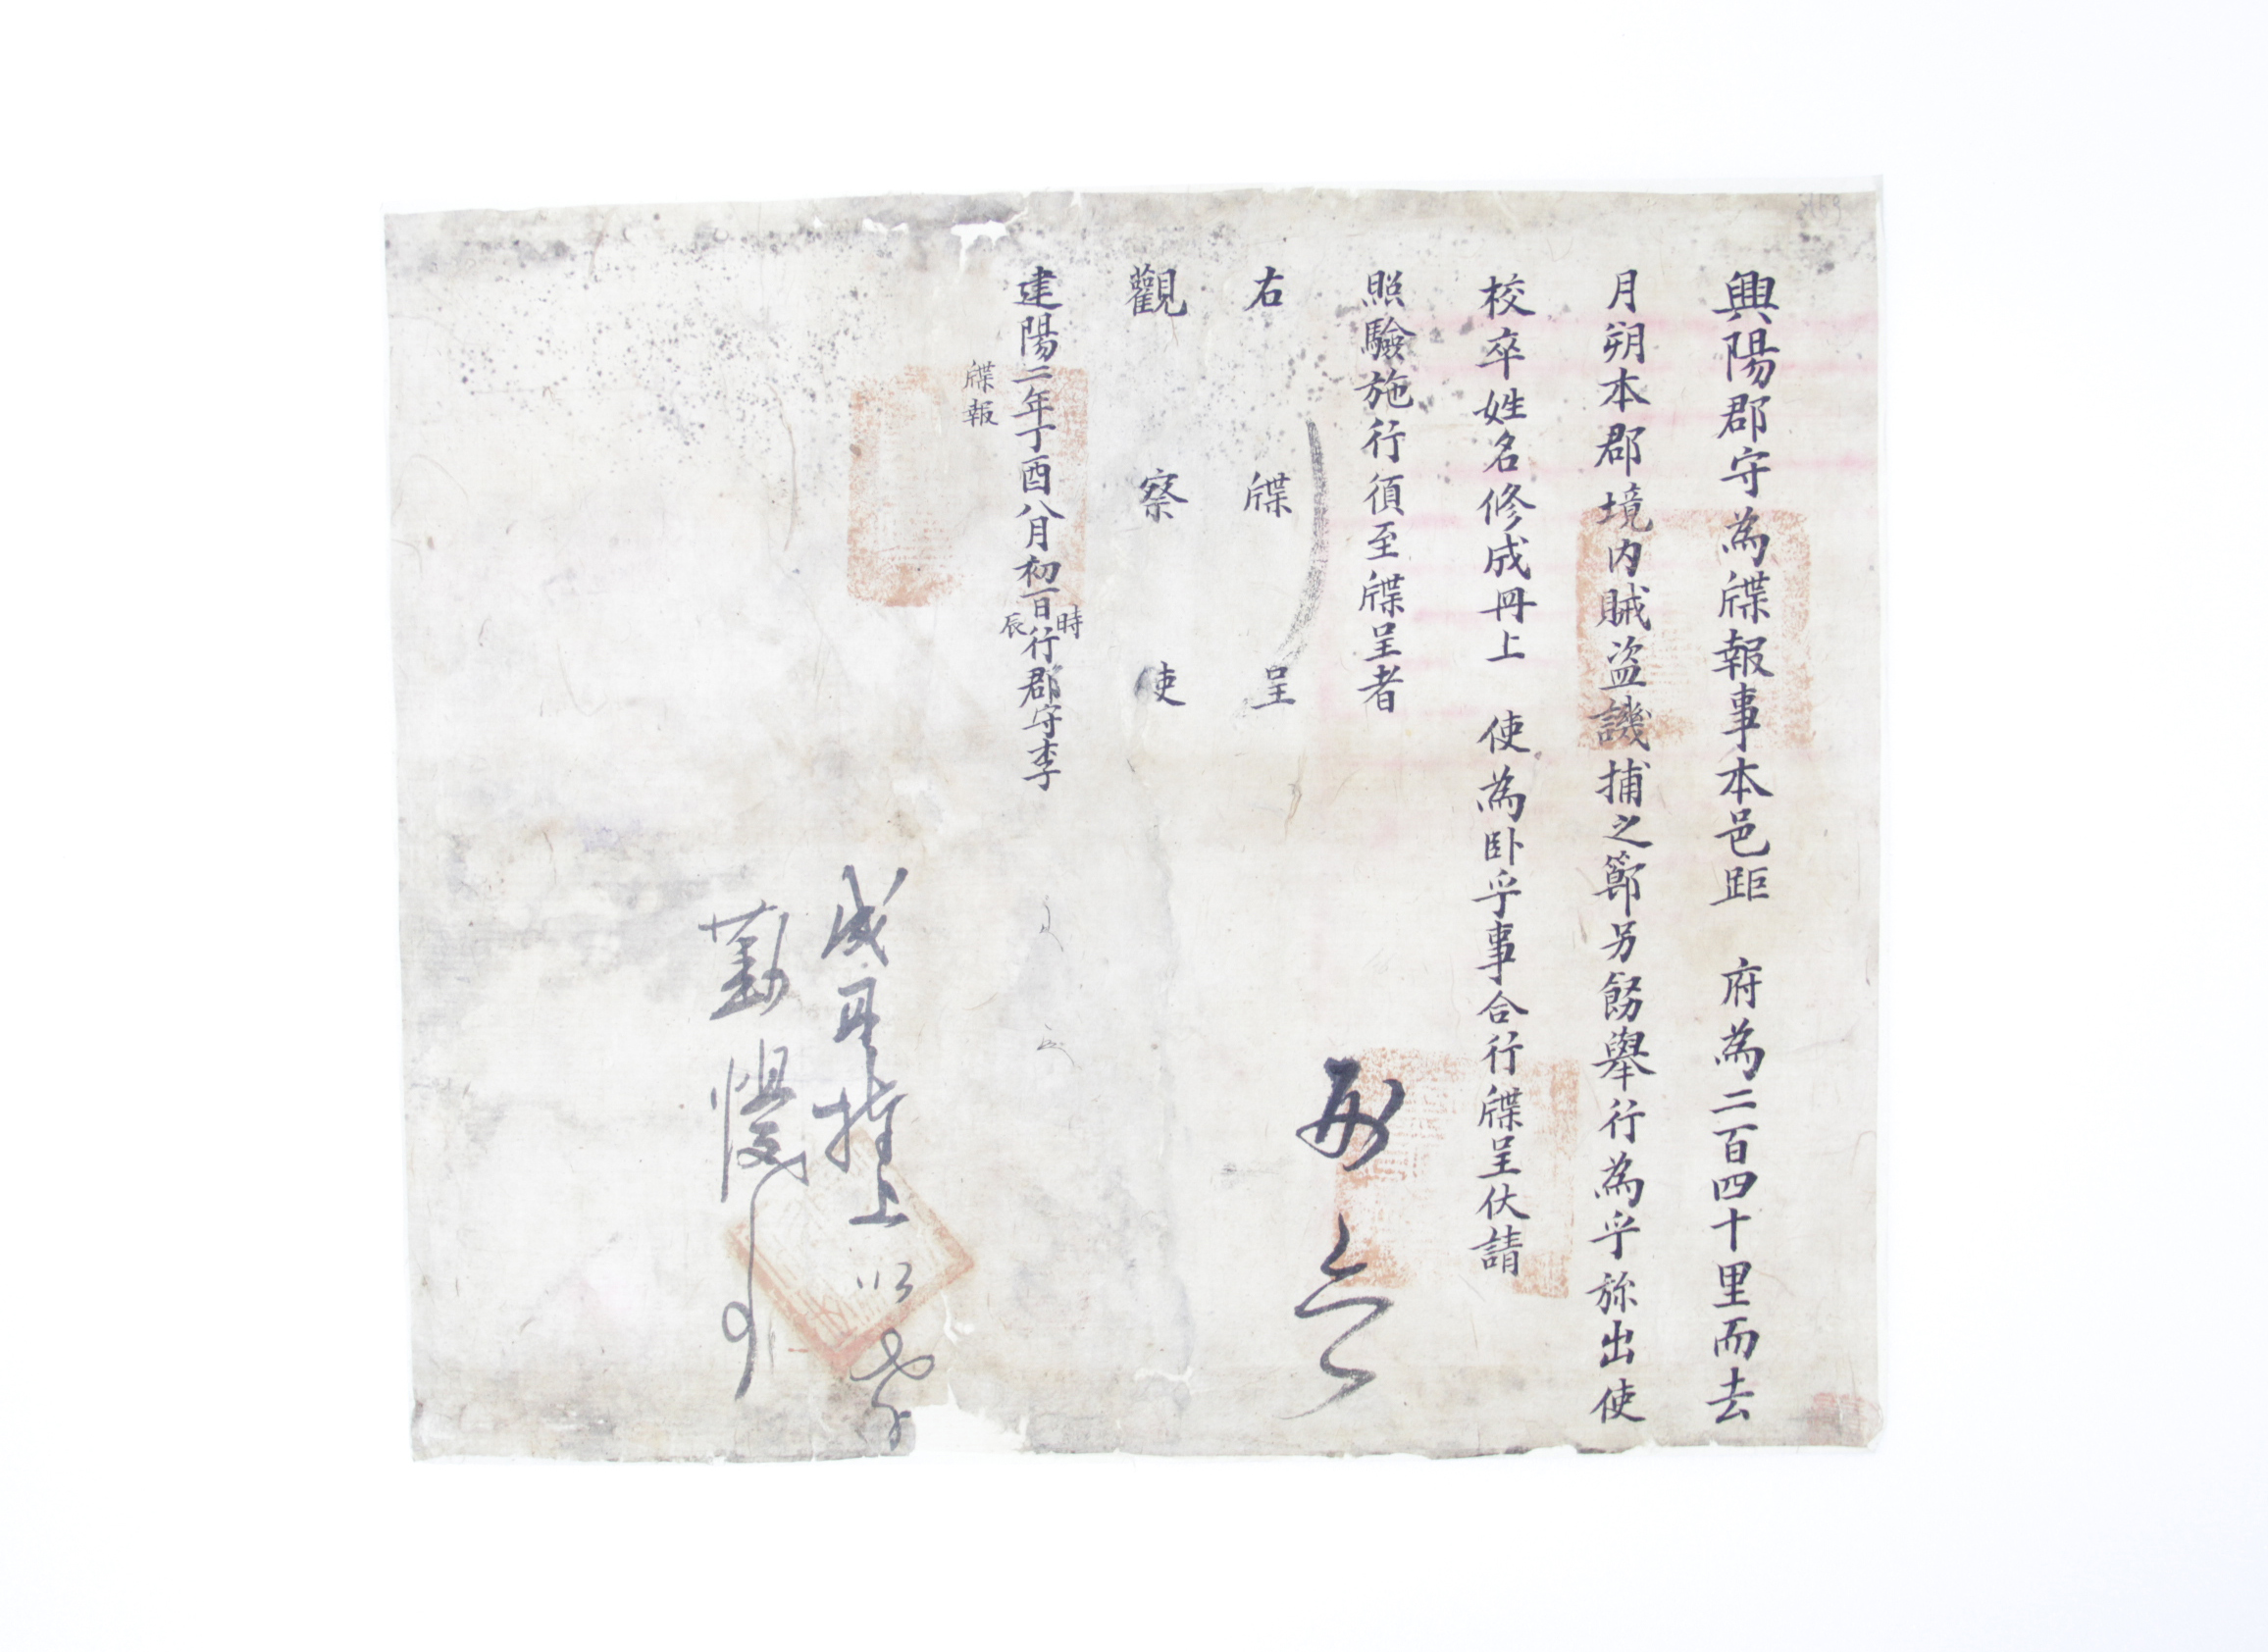 興陽郡守為牒報事本邑距 府為二百四十里而去
月朔本郡境內賊盜譏捕之節另飭舉行為乎旀出使
校卒姓名修成冊上 使為臥乎事合行牒呈伏請
照驗施行須至牒呈者
右牒呈
觀察使
建陽二年丁酉八月初一日行郡守李
時
辰
牒報
成冊捧上
勤慢